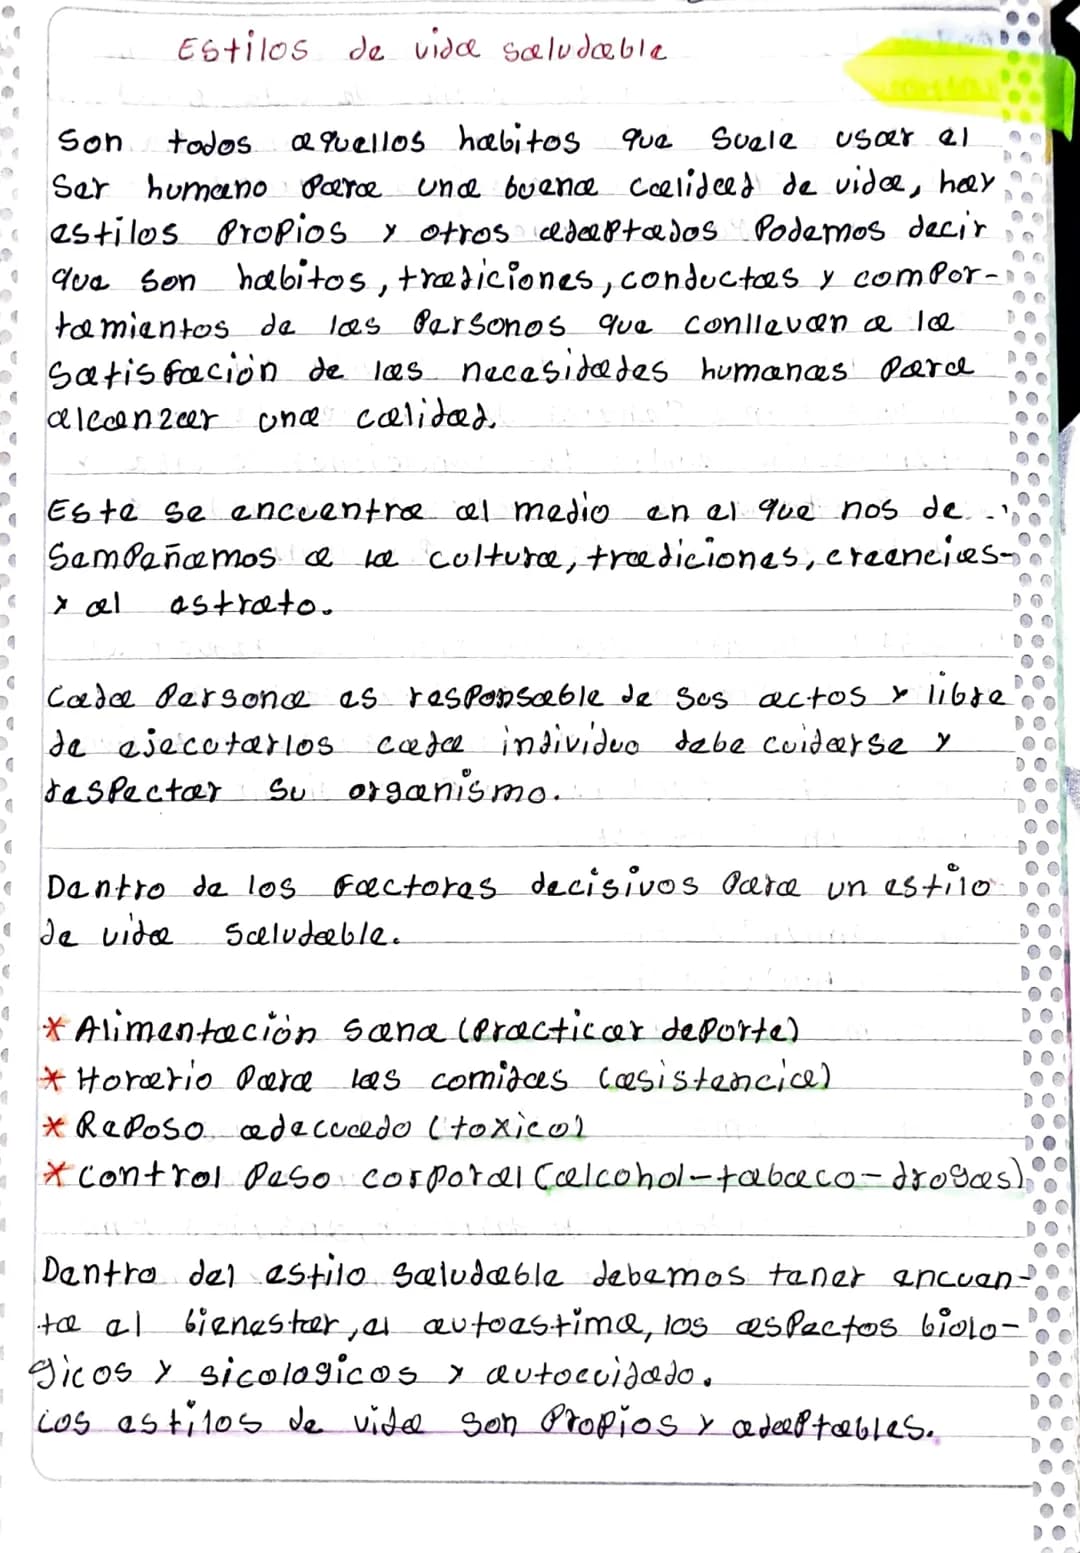 Estilos de vida saludable
Son todos aquellos habitos que suele usar el
Ser humano para una buena calidad de vida, hay
estilos propios y otros adaptados Podemos decir
que son habitos, tradiciones, conductas y compor-
tamientos de las Personos que conllevan a la
Satisfación de las necesidades humanas para
alcanzar una calidad.
Este se encuentra al medio en el que nos de
sempeñamos a la cultura, tradiciones, creencias-
y al estrato.
Cada Persona es responsable de sus actos y libre
de ejecutarlos cada individuo debe cuidarse y
respectar su organismo.
Dentro de los factores decisivos para un estilo
de vida saludable.
* Alimentación sana (practicar deporte)
* Horario para las comidas (asistencia)
* Reposo adecuado (toxico)
* control peso corporal (alcohol-tabaco-drogas)
Dentro del estilo saludable debemos tener encuen-
ta el bienestar, el autoestima, los aspectos biolo-
gicos y sicologicos y autocuidado.
Los estilos de vida son propios y adaptables.